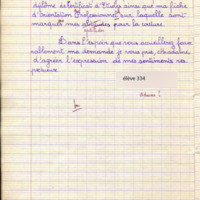 diplôme de Certificat d'Etudes ainsi que ma fiche
d'Orientation Professionnel sur laquelle sont
marqués mes aptitudes pour la couture.
Dans l'espoir que vous accueillerez favo
rablement ma demande je vous prie, Madame,
d'agréer l'expression de mes sentiments res
pectueux.
élève 334